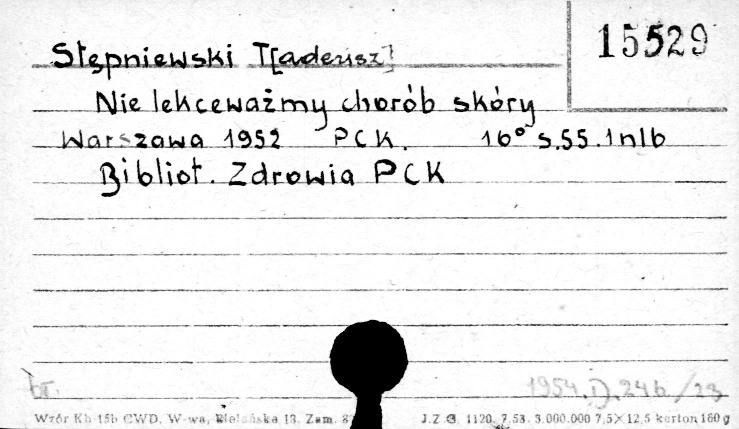 15529
Stępniewski T[adeusz]
Nie lekceważmy chorób skóry
Warszawa 1952 PCK. 16° s.55.1nlb
Bibliot. Zdrowia PCK
br. 1954.D.246/23
Wzór Kh 15b CWD. W-wa, Bielańska 18. Zam. J.Z.G. 1120. 7.53. 3.000.000 7,5×12,5 karton 160 g